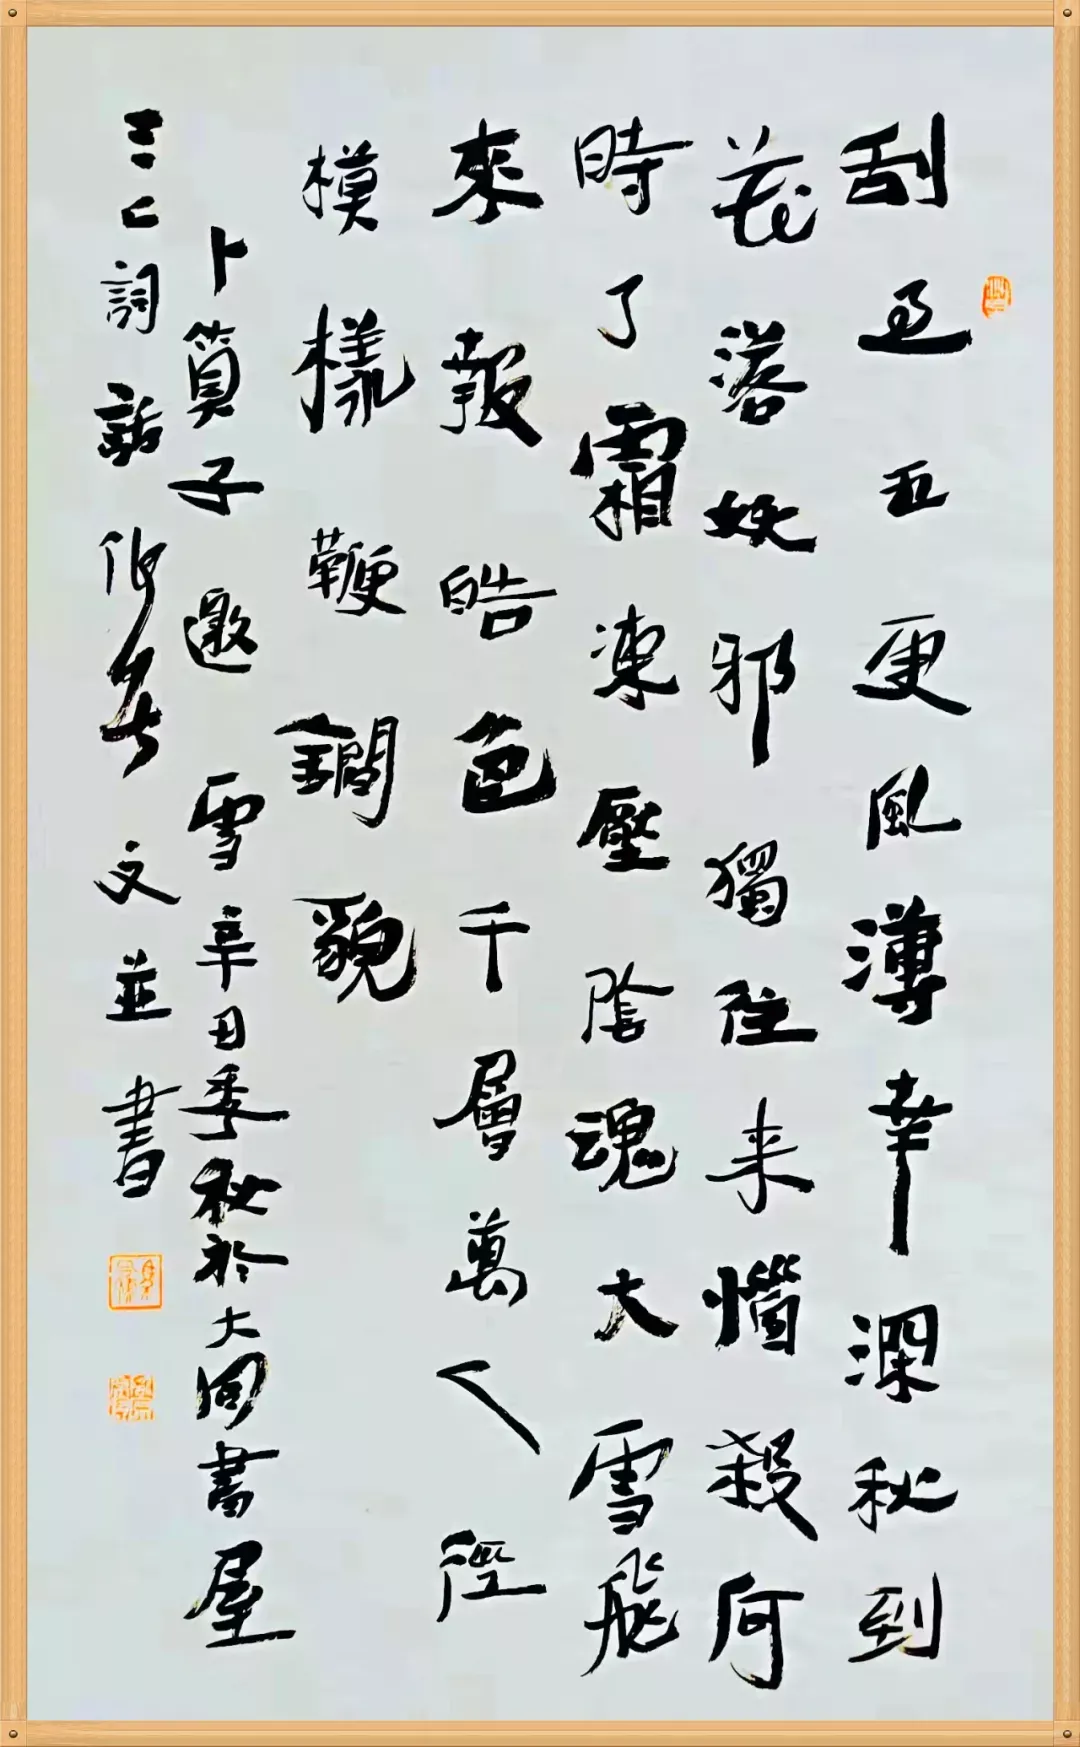 刮過五更風薄幸深秋到
花落妖邪獨往来惱殺何
時了霜凍壓陰魂大雪飛
來報皓色千層萬乀徑
模樣鞭鐧貌
卜算子 邀 雪 辛丑季秋於大同書屋
詞話 文並書